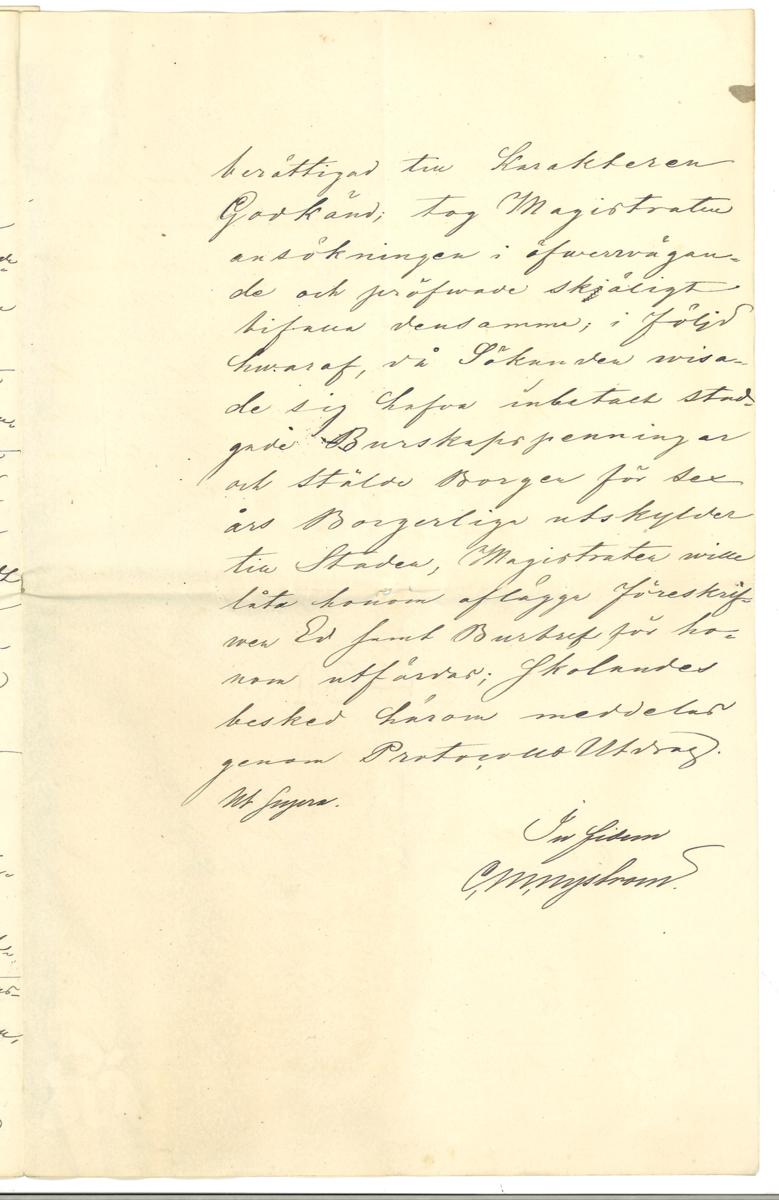 berättigad till Karakteren
Godkänd; tog Magistraten
ansökningen i öfwervägan-
de och pröfwade skjäligt
bifalla densamma; i följd
hwaraf, då Sökanden wisa-
de sig hafva inbetalt stad-
gade Burskapspenningar
och stälde Borgen för sex
års Borgerliga utskylder
till Staden, Magistraten wille
låta honom aflägga föreskrif-
wen Ed samt Burbref för ho-
nom utfärdas; skolandes
besked härom meddelas
genom Protocolls Utdrag.
Ut supra.
In fidem
C, M, Nyström.